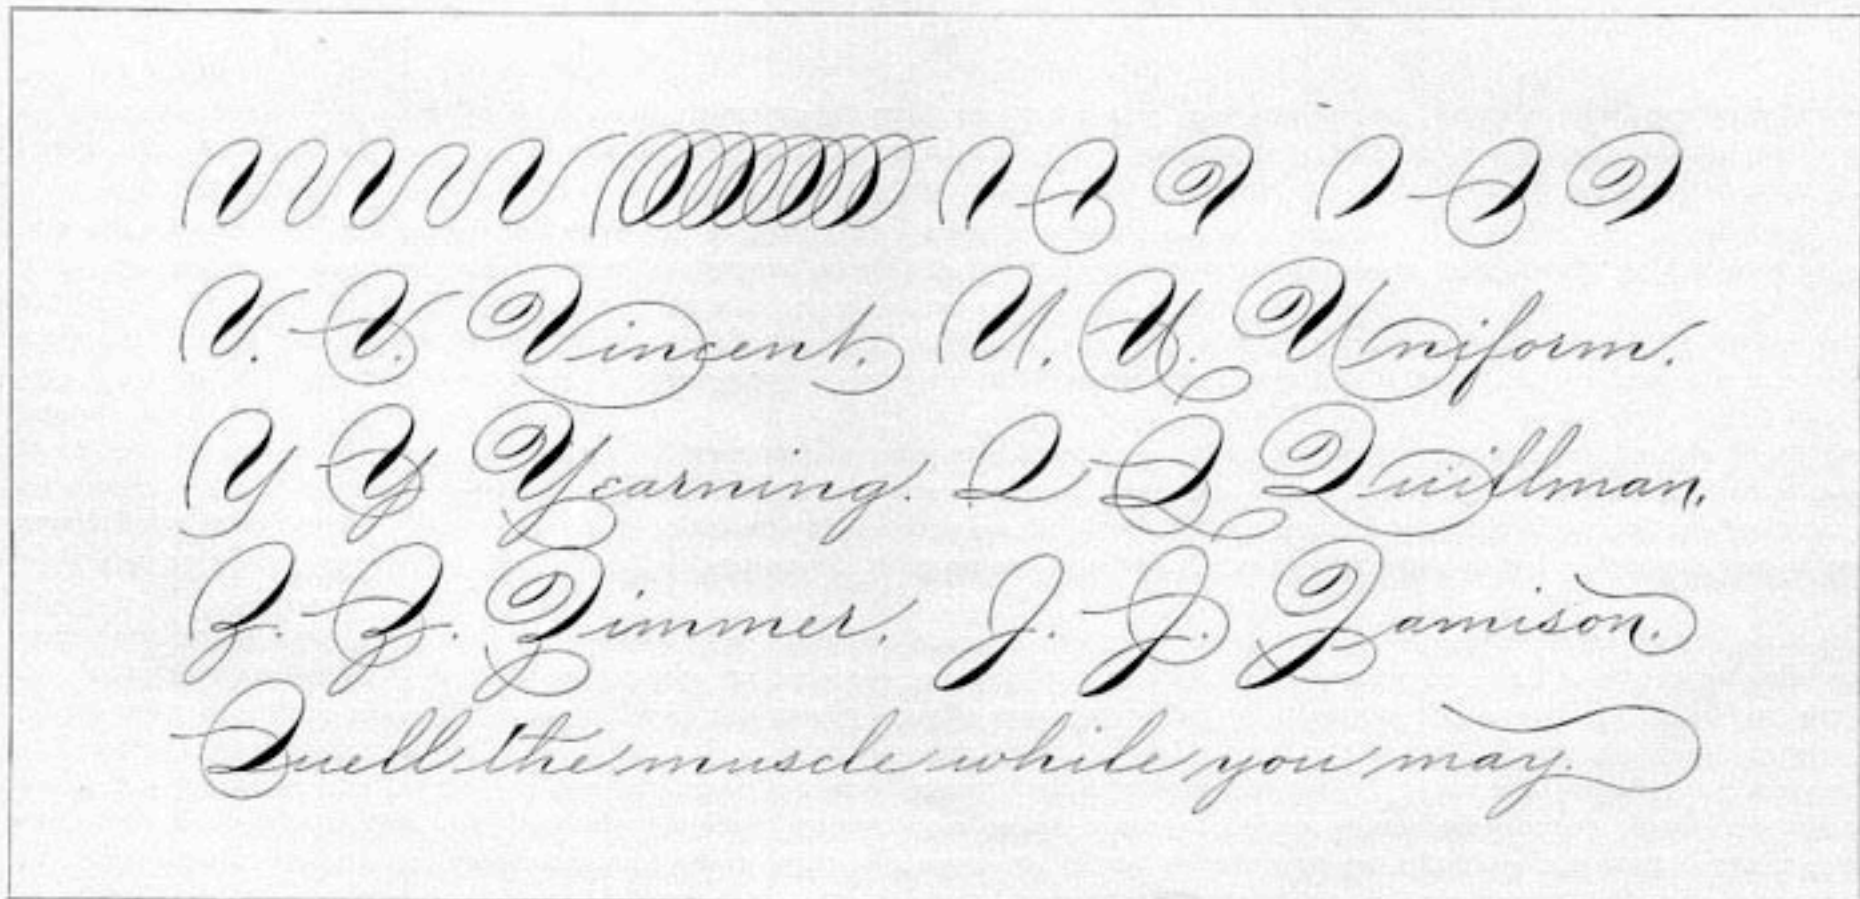 V. V. Vincent. U. U. Uniform.
Y Y Yearning. Q Q Quillman.
Z. Z. Zimmer. J. J. Jamison.
Quell the muscle while you may.